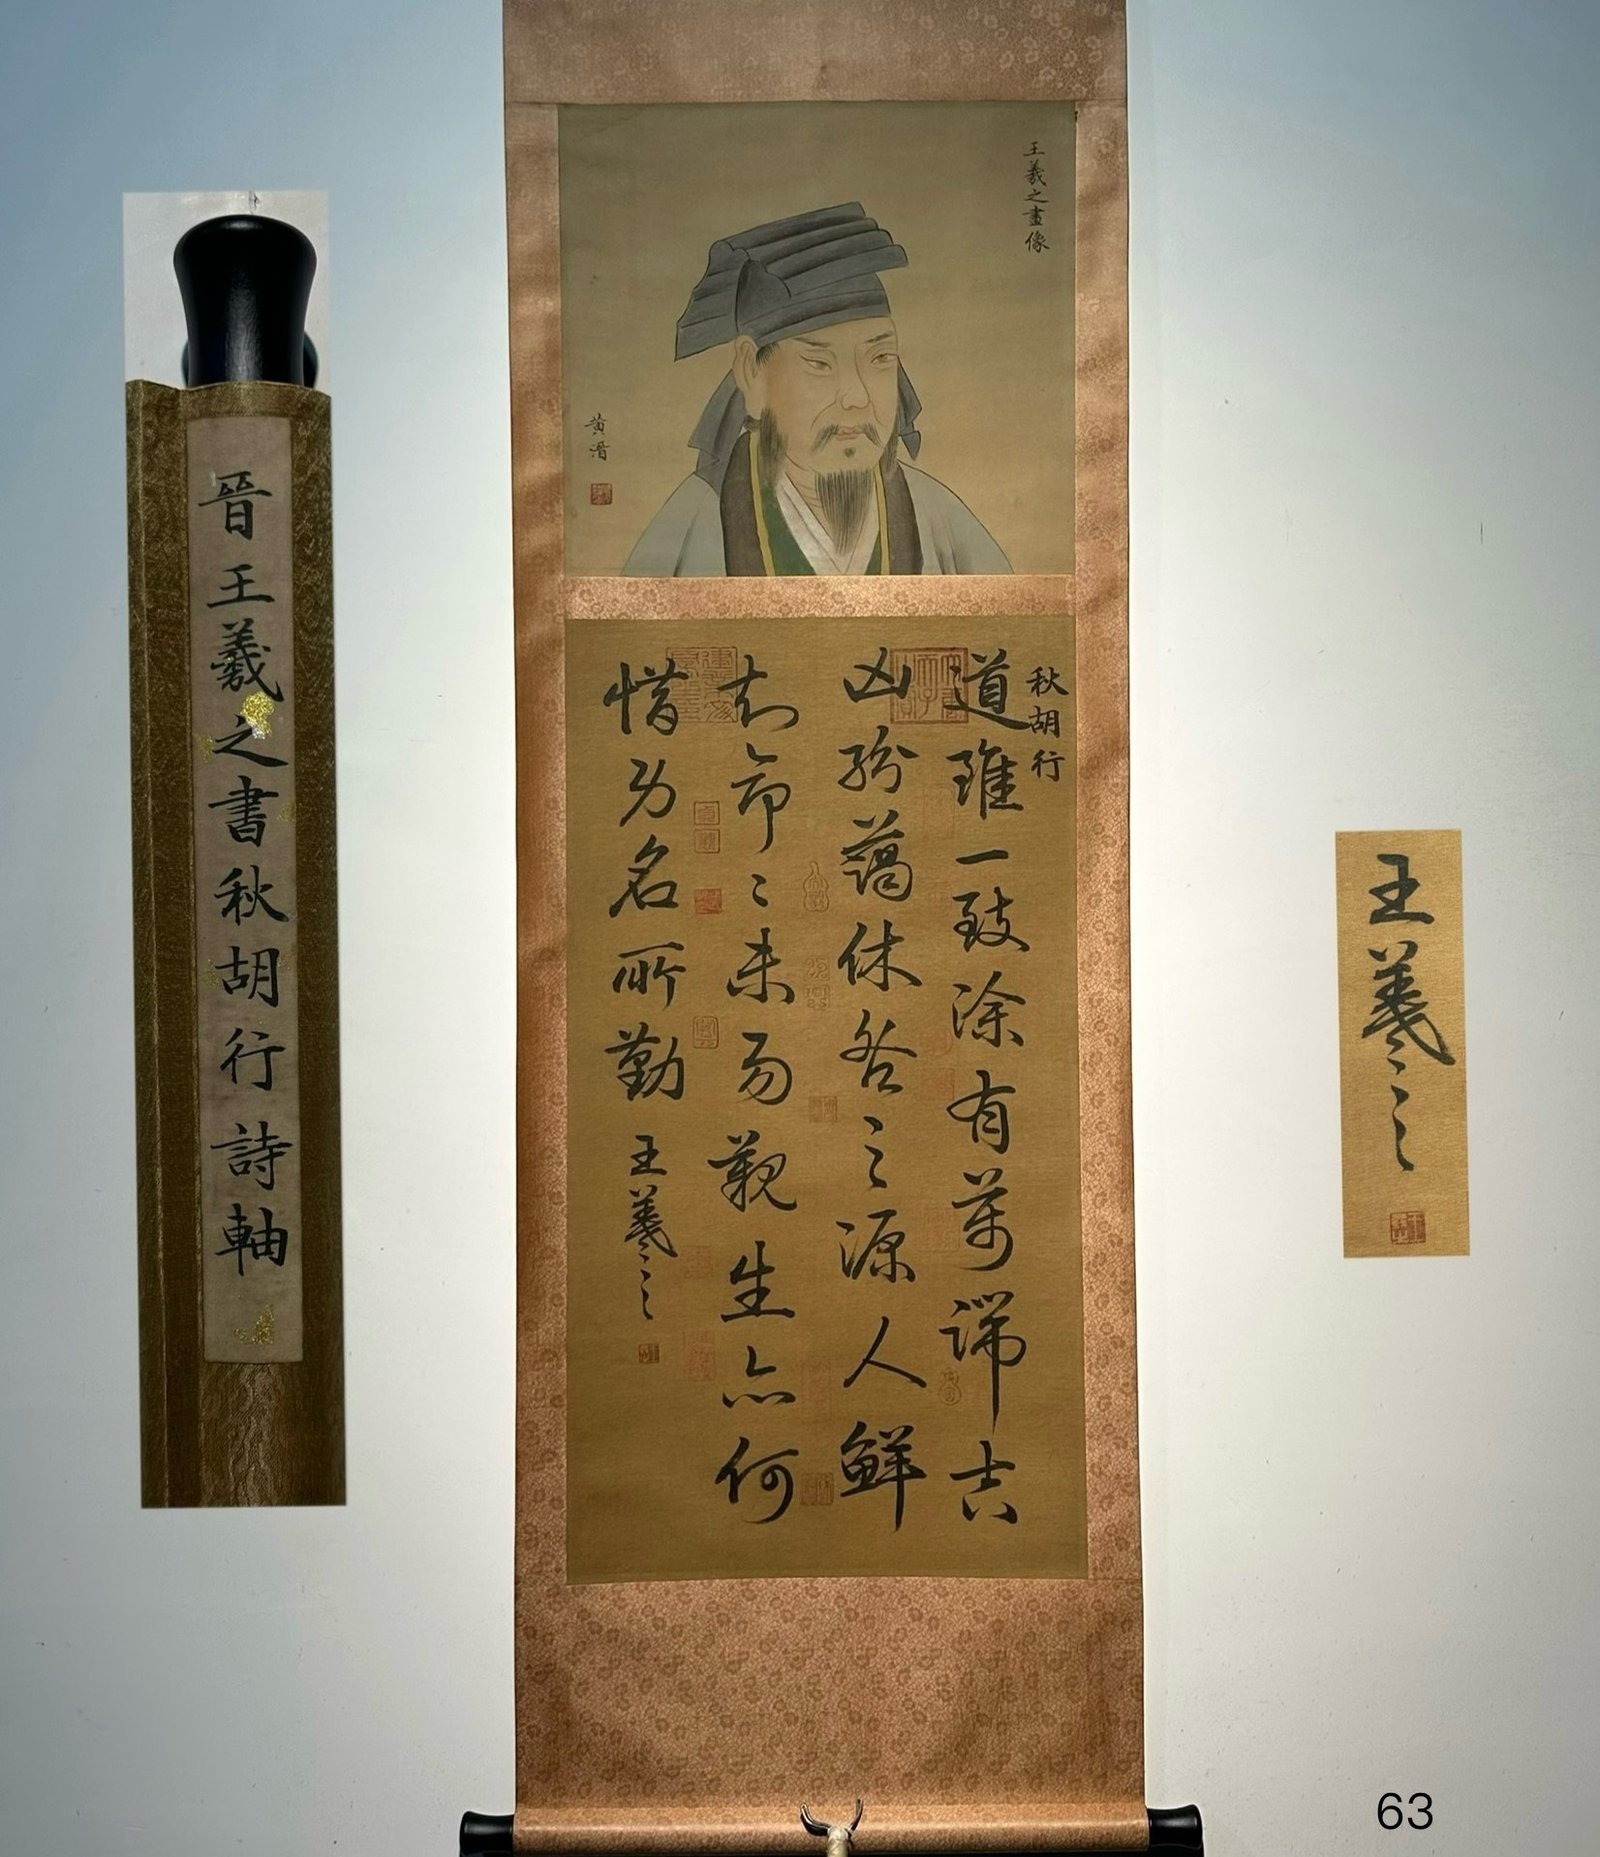 晉王羲之書秋胡行詩軸
王羲之畫像
黃溍
秋胡行
道雖一致涂有萬端吉
凶紛藹休咎之源人鮮
知命〻未易觀生亦何
惜功名所勤 王羲之
王羲之
63